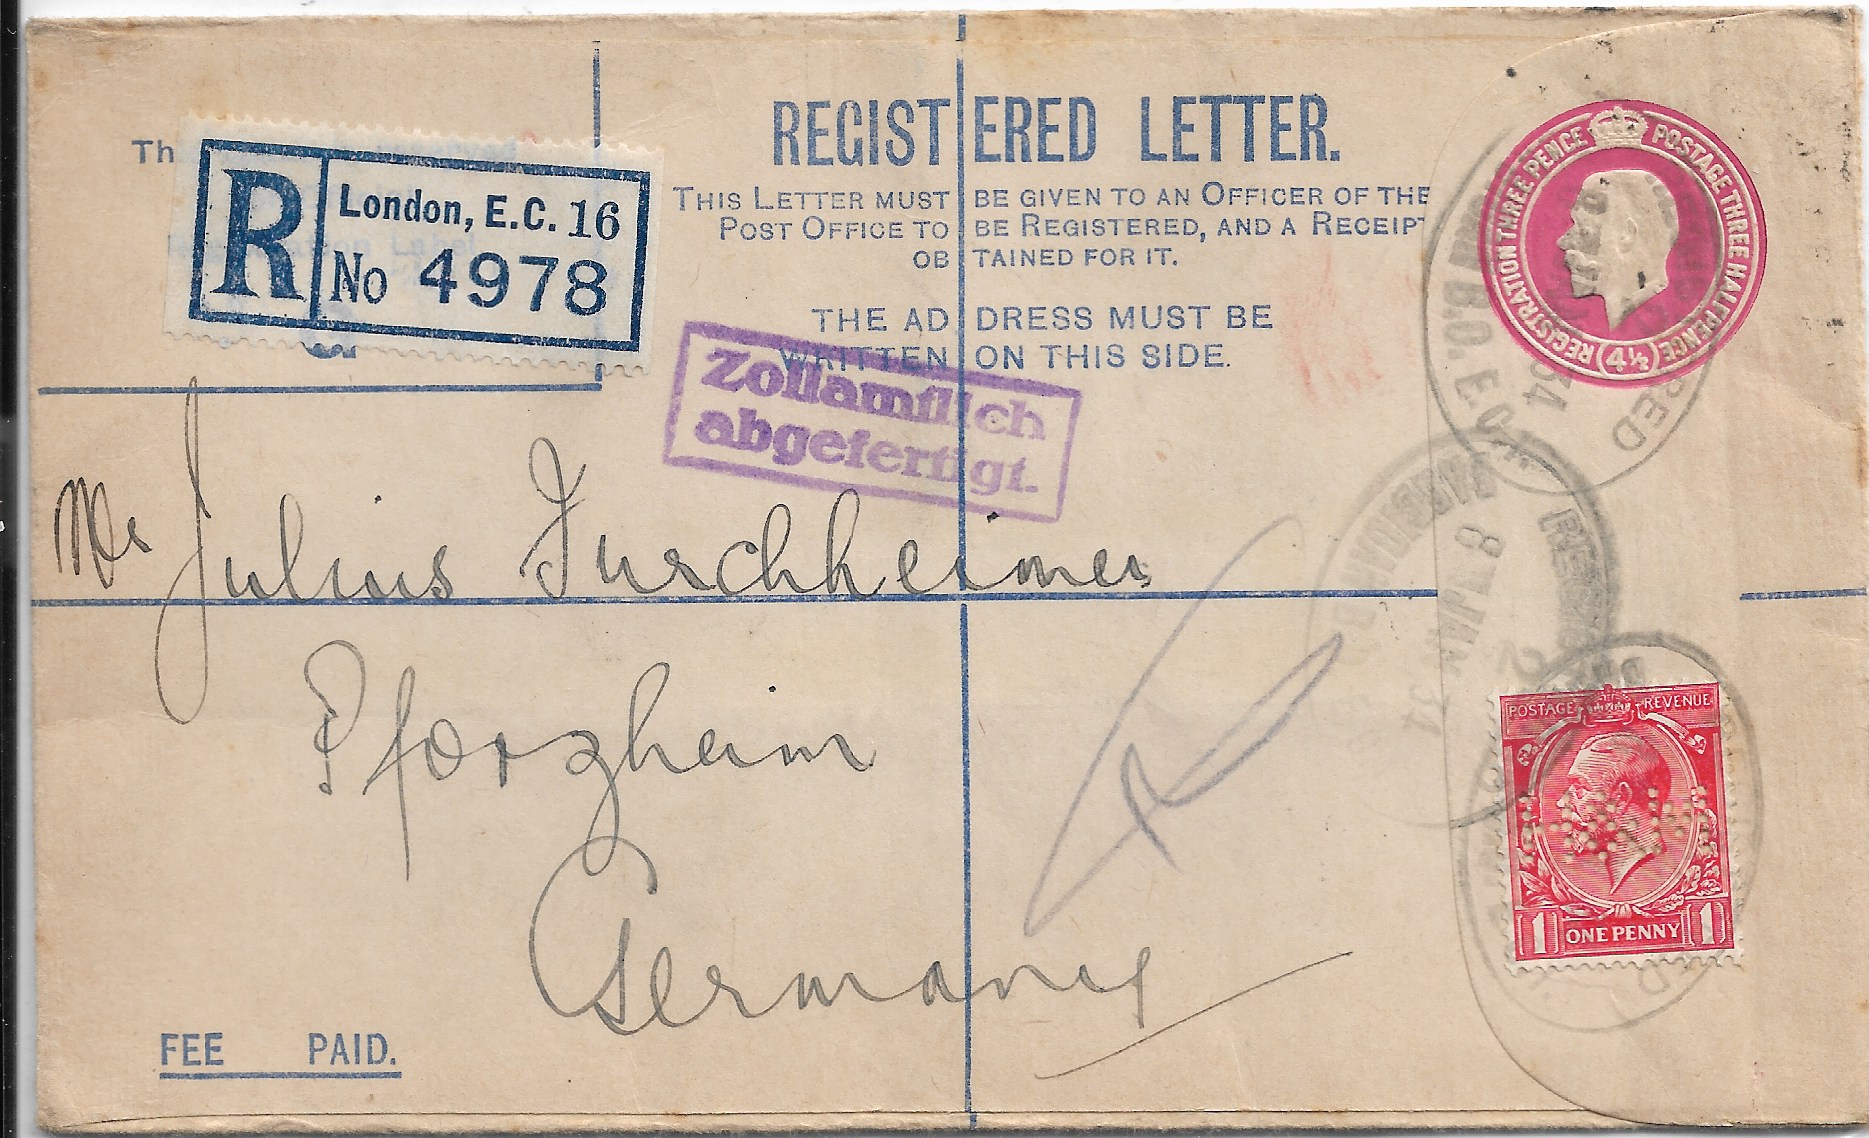 REGISTERED LETTER.
THIS LETTER MUST BE GIVEN TO AN OFFICER OF THE
POST OFFICE TO BE REGISTERED, AND A RECEIPT
OBTAINED FOR IT.
THE ADDRESS MUST BE
WRITTEN ON THIS SIDE.
Th
R
London, E.C. 16
No 4978
REGISTRATION THREE PENCE POSTAGE THREE HALFPENCE
4½
B.O. E.C.
34
Zollamtlich
abgefertigt.
Mr Julius Furchheimer
Pforzheim
Germany
8 JAN 34
POSTAGE REVENUE
1 ONE PENNY 1
FEE PAID.